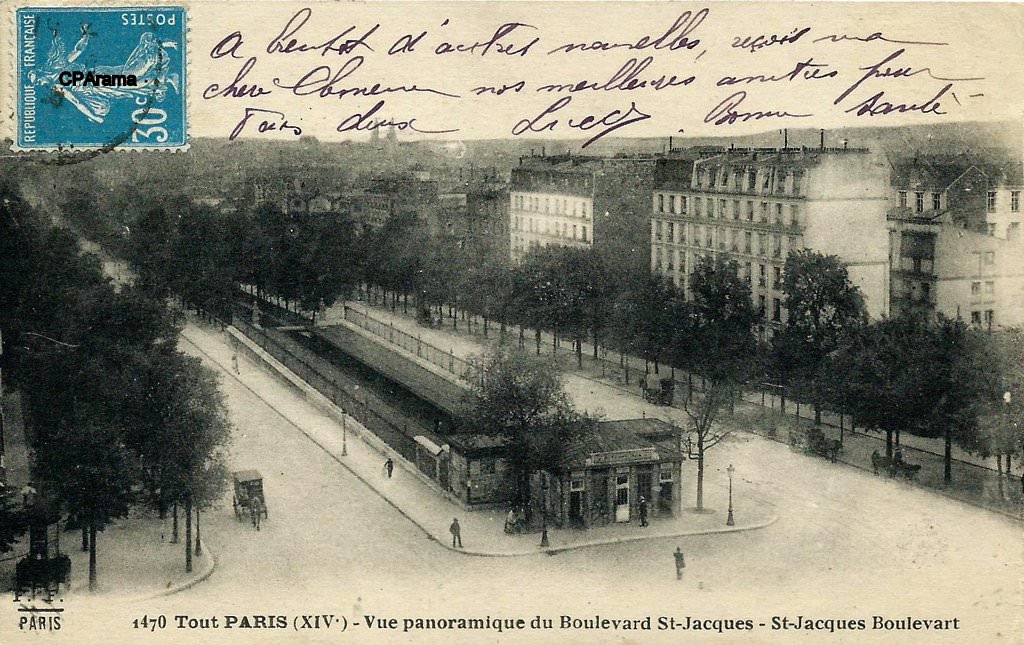 REPUBLIQUE FRANÇAISE
POSTES
30c
CPArama
A bientôt d'autres nouvelles, reçois ma
chère Clemence nos meilleures amitiés pour
Tous deux Lucy. Bonne Santé
F. F.
PARIS
1470 Tout PARIS (XIVe) - Vue panoramique du Boulevard St-Jacques - St-Jacques Boulevart